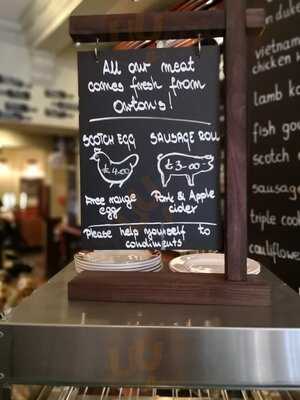 All our meat
comes fresh from
Owton's!
SCOTCH EGG
£4.00
Free range
egg
SAUSAGE ROLL
£3.00
Pork & Apple
cider
Please help yourself to
condiments
vietnam
chicken
lamb
fish go
scotch
sausage
triple cook
cauliflower